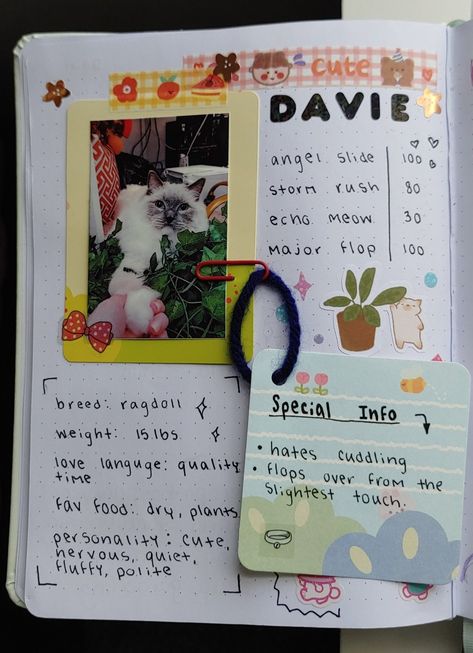 cute
DAVIE
angel slide 100
storm rush 80
echo meow 30
major flop 100
Special Info
• hates cuddling
• flops over from the
slightest touch.
breed: ragdoll
weight: 15 lbs
love languge: quality
time
fav food: dry, plants
personality: cute,
nervous, quiet,
fluffy, polite